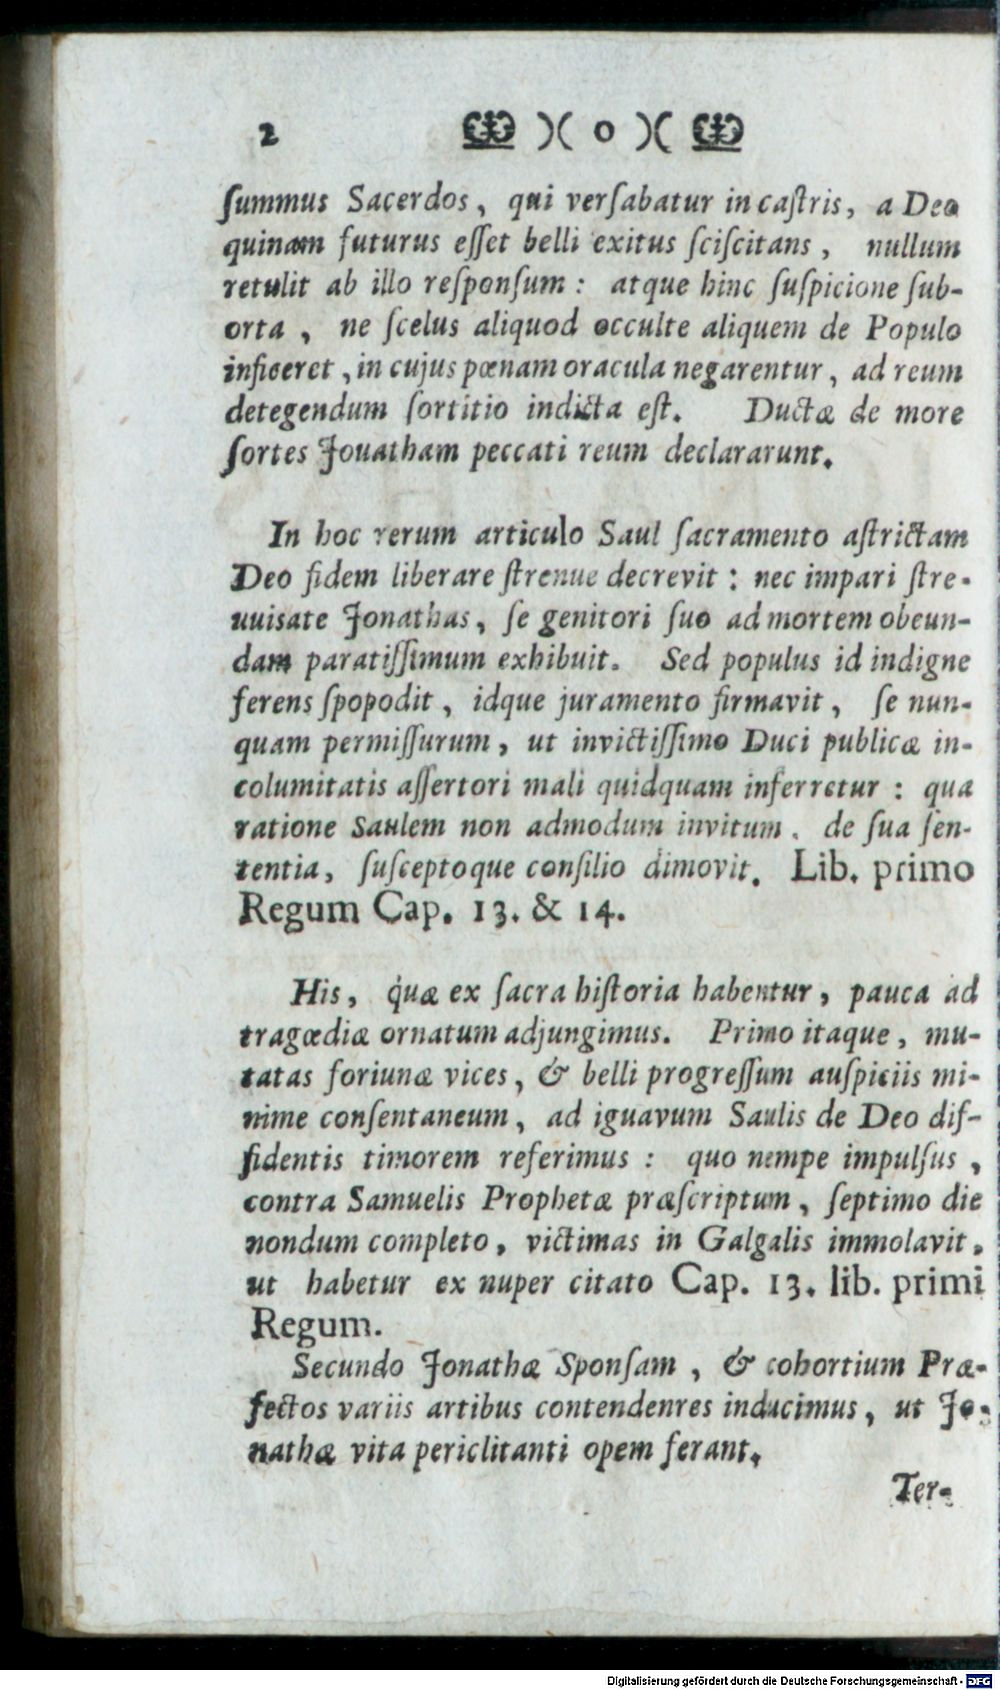 2 )( o )(
ſummus Sacerdos, qui verſabatur in caſtris, a Deo
quinam futurus eſſet belli exitus ſciſcitans, nullum
retulit ab illo reſponſum: atque hinc ſuſpicione ſub-
orta, ne ſcelus aliquod occulte aliquem de Populo
inficeret, in cujus pœnam oracula negarentur, ad reum
detegendum ſortitio indicta eſt. Ductæ de more
ſortes Jouatham peccati reum declararunt.
In hoc rerum articulo Saul ſacramento aſtrictam
Deo fidem liberare ſtrenue decrevit: nec impari ſtre-
uuisate Jonathas, ſe genitori ſuo ad mortem obeun-
dam paratiſſimum exhibuit. Sed populus id indigne
ferens ſpopodit, idque juramento firmavit, ſe nun-
quam permiſſurum, ut invictiſſimo Duci publicæ in-
columitatis aſſertori mali quidquam inferretur: qua
ratione Saulem non admodum invitum. de ſua ſen-
tentia, ſuſceptoque conſilio dimovit. Lib. primo
Regum Cap. 13. & 14.
His, quæ ex ſacra hiſtoria habentur, pauca ad
tragœdiæ ornatum adjungimus. Primo itaque, mu-
tatas foriunæ vices, & belli progreſſum auſpiciis mi-
nime conſentaneum, ad iguavum Saulis de Deo diſ-
fidentis timorem referimus: quo nempe impulſus,
contra Samuelis Prophetæ præſcriptum, ſeptimo die
nondum completo, victimas in Galgalis immolavit,
ut habetur ex nuper citato Cap. 13. lib. primi
Regum.
Secundo Jonathæ Sponſam, & cohortium Præ-
fectos variis artibus contendenres inducimus, ut Jo-
nathæ vita periclitanti opem ferant.
Ter-
Digitalisierung gefördert durch die Deutsche Forschungsgemeinschaft - DFG